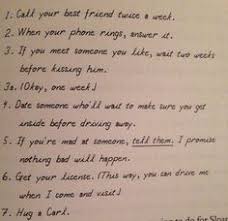 1. Call your best friend twice a week.
2. When your phone rings, answer it.
3. If you meet someone you like, wait two weeks
before kissing him.
3a. (Okay, one week)
4. Date someone who'll wait to make sure you get
inside before driving away.
5. If you're mad at someone, tell them. I promise
nothing bad will happen.
6. Get your license. (This way, you can drive me
when I come and visit)
7. Hug a Carl.
to do for Sloa